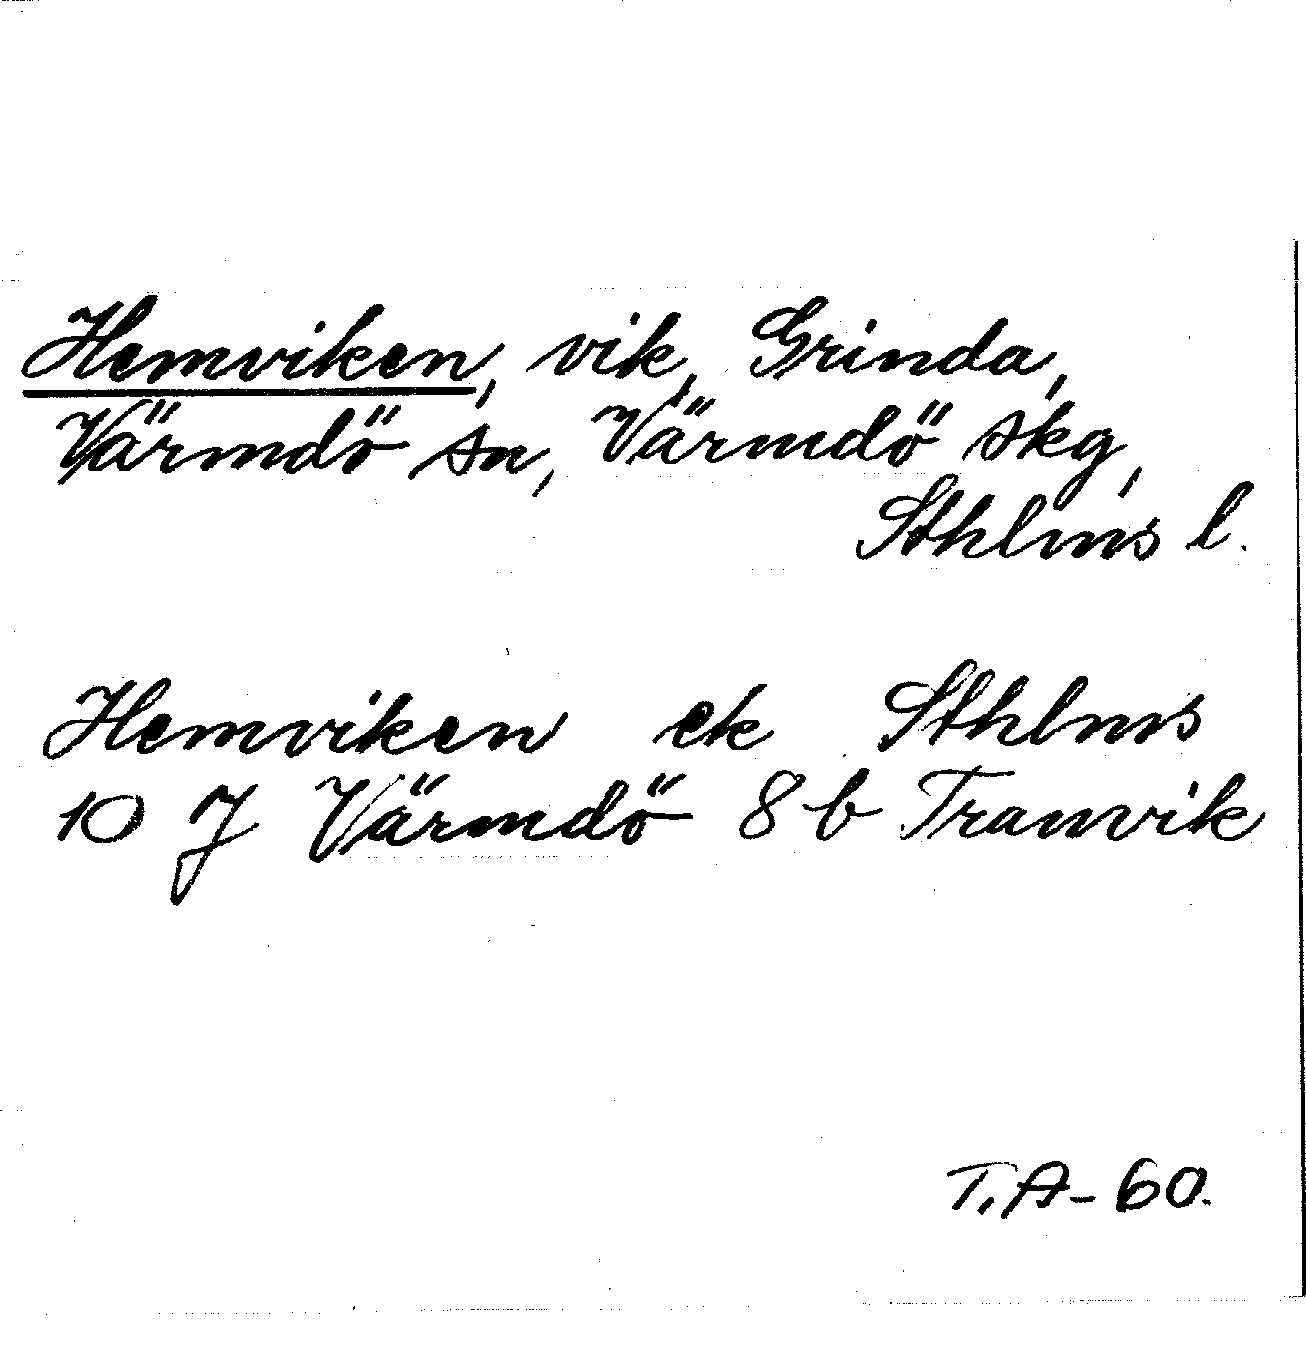 Hemviken, vik, Grinda,
Värmdö sn, Värmdö skg,
Sthlms l.
Hemviken ek Sthlms
10 J Värmdö 8 b Tranvik
T.A-60.